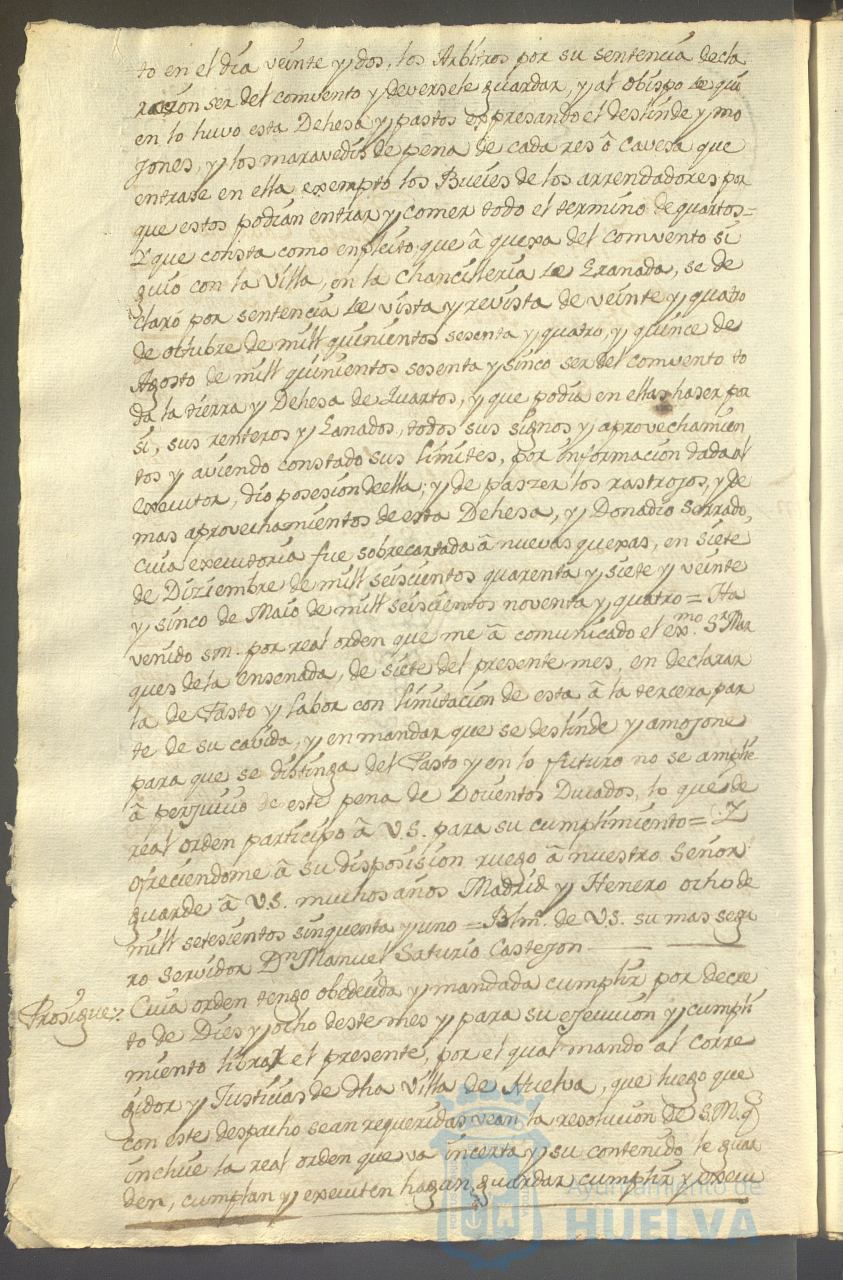 to en el dia veinte y dos, los Arbitros por su sentencia decla
raron ser del comvento y deversele guardar, y al obispo de qui
en lo huvo esta Dehesa y pastos expresando el deslinde y mo
jones, y los maravedis de pena de cada res ô caveza que
entrase en ella exempto los Bueies de los arrendadores por
que estos podian entrar y comer todo el termino de quartos =
Y que consta como en pleito que â quexa del comvento si
guio con la Villa, en la Chancilleria de Granada, se de
claró por sentencia de vista y revista de veinte y quatro
de octubre de mill quinientos sesenta y quatro, y quince de
Agosto de mill quinientos sesenta y sinco ser del comvento to
da la tierra y Dehesa de Quartos, y que podia en ellas haser por
si, sus renteros y Ganados, todos sus signos y aprovechamien
tos y aviendo constado sus limites, por informacion dada al
executor, dio posesion de ella, y de paszer los rastrojos, y de
mas aprovechamientos de esta Dehesa, y Donadio Serrado,
cuia executoria fue sobrecartada â nuevas quexas, en siete
de Diziembre de mill seiscientos quarenta y siete y veinte
y sinco de Maio de mill seiscientos noventa y quatro = Ha
venido sm. por real orden que me â comunicado el exmo. Sr. Mar
ques de la ensenada, de siete del presente mes, en declarar
la de Pasto y labor con limitacion de esta â la tercera par
te de su cavida, y en mandar que se deslinde y amojone
para que se distinga del Pasto y en lo futuro no se amplie
â perjuicio de este pena de Docientos Ducados, lo que de
real orden participo â V.S. para su cumplimiento = Y
ofreciendome â su disposision ruego â nuestro Señor
guarde â V.S. muchos años Madrid y Henero ocho de
mill setesientos sinquenta y uno = Blm. de VS. su mas segu
ro servidor Dn Manuel Saturio Castejon
Prosigue. Cuia orden tengo obedecida y mandada cumplir por decre
to de Dies y ocho deste mes y para su ejecucion y cumpli
miento librar el presente, por el qual mando al Corre
gidor y Justicias de dha Villa de Huelva, que luego que
con este despacho sean requeridas vean la resolucion de S.M. q
incluie la real orden que va incerta y su contenido le guar
den, cumplan y executen hagan guardar cumplir y execu
Ayuntamiento de
HUELVA